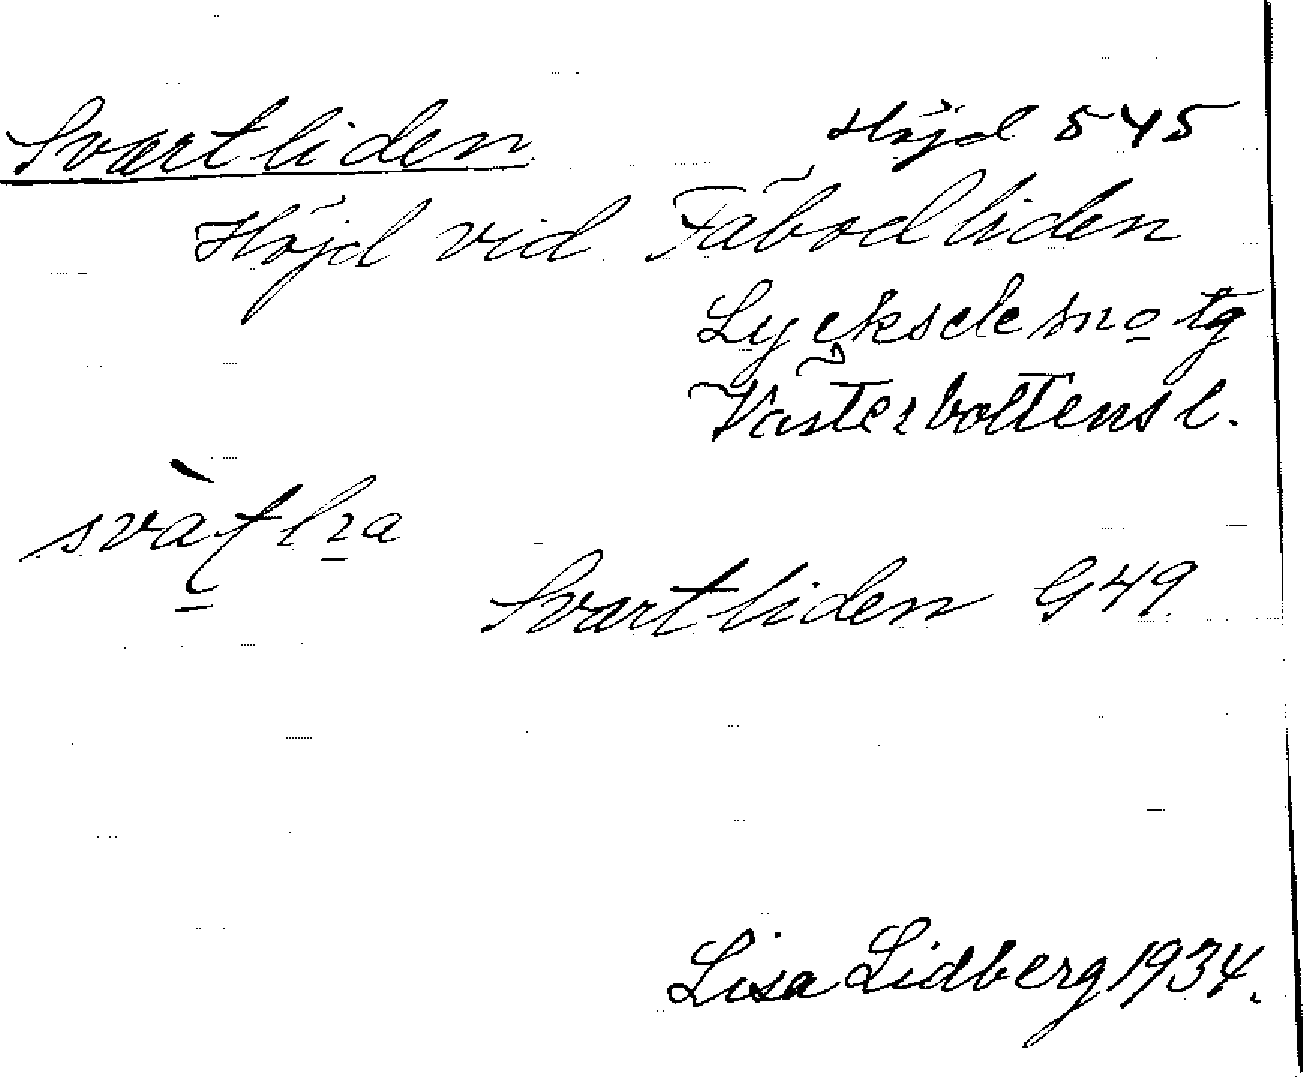 Svartliden Höjd 545
Höjd vid Fäbodliden
Lycksele sn o tg
Västerbottens l.
Svartliden G49
Lisa Lidberg 1934.